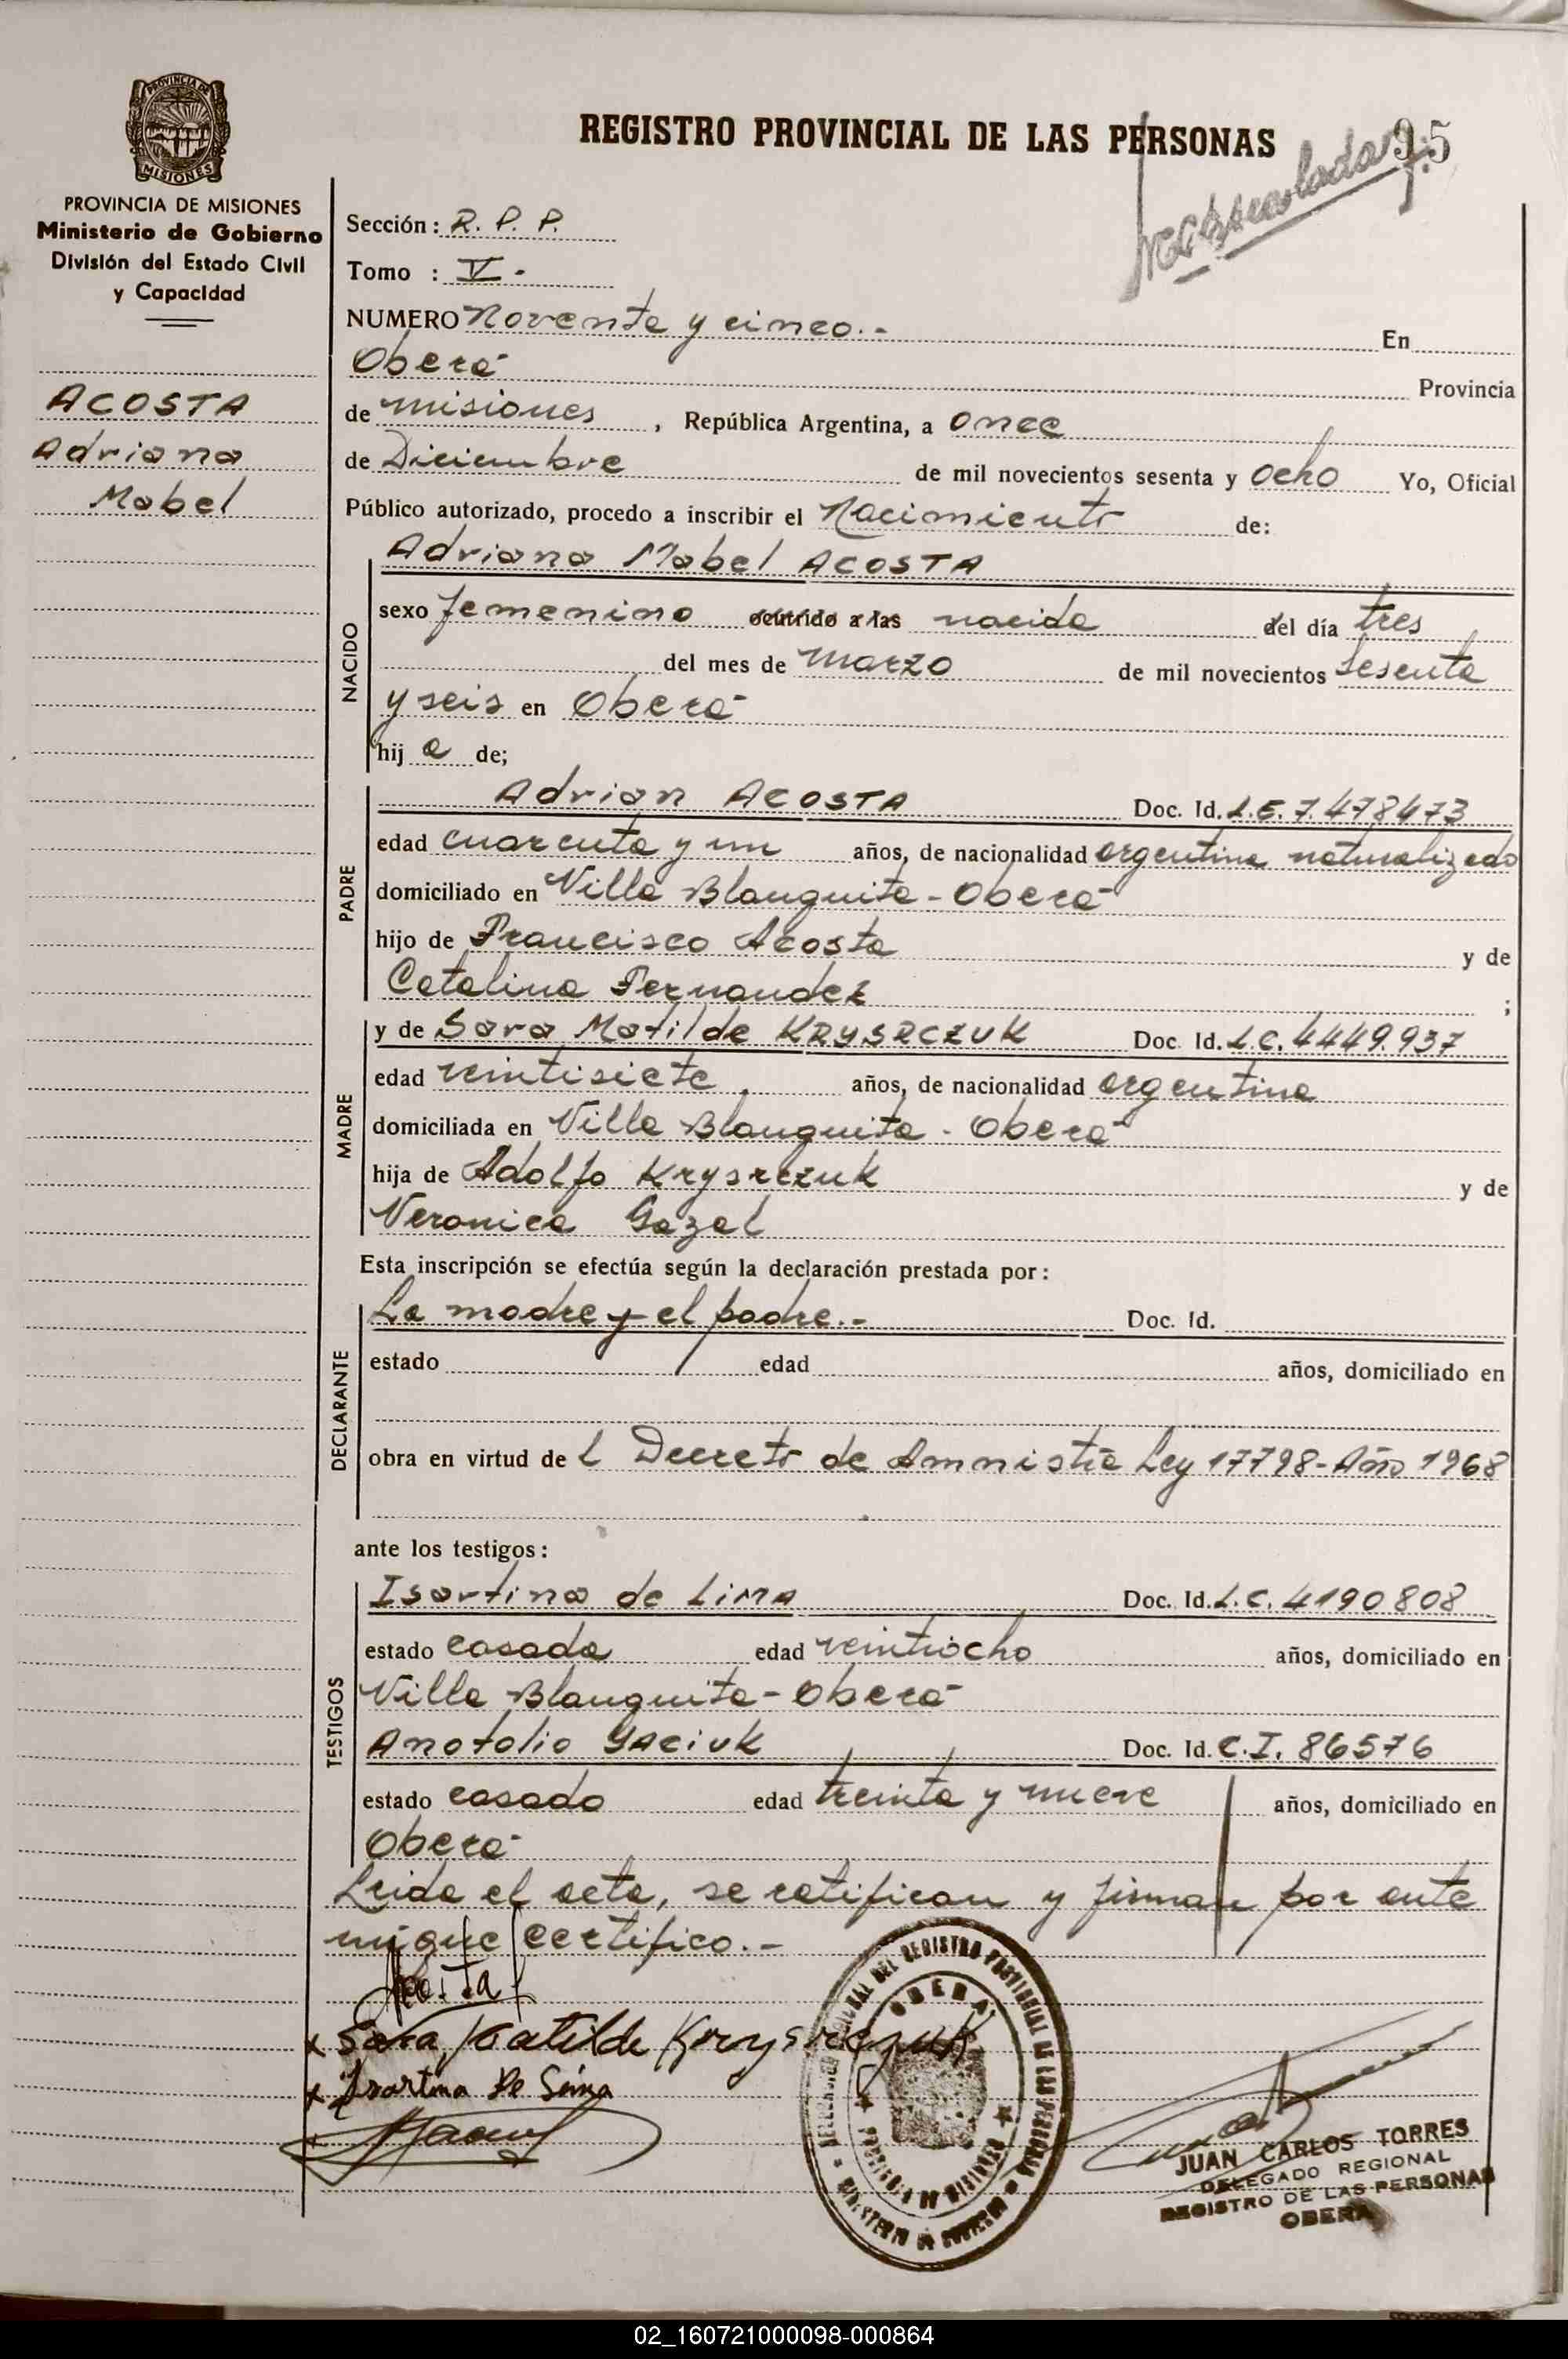 REGISTRO PROVINCIAL DE LAS PERSONAS
95
PROVINCIA DE MISIONES
PROVINCIA DE MISIONES
Ministerio de Gobierno
División del Estado Civil
y Capacidad
ACOSTA
Adriana
Mabel
Sección: R. P. P.
Tomo : V.-
NUMERO Noventa y cinco.- En
Oberá Provincia
de Misiones, República Argentina, a once
de Diciembre de mil novecientos sesenta y ocho Yo, Oficial
Público autorizado, procedo a inscribir el Nacimiento de:
NACIDO
Adriana Mabel ACOSTA
sexo femenino ocurrido a las nacida del día tres
del mes de Marzo de mil novecientos sesenta
y seis en Oberá
hija de;
PADRE
Adrian ACOSTA Doc. Id. L.E. 7.478473
edad cuarenta y un años, de nacionalidad argentino naturalizado
domiciliado en Villa Blanquita - Oberá
hijo de Francisco Acosta y de
Catalina Fernandez ;
MADRE
y de Sara Matilde KRYSRCZUK Doc. Id. L.C. 4449.937
edad veintisiete años, de nacionalidad argentina
domiciliada en Villa Blanquita - Oberá
hija de Adolfo Krysrczuk y de
Veronica Gazal
Esta inscripción se efectúa según la declaración prestada por:
DECLARANTE
La madre y el padre.- Doc. Id.
estado edad años, domiciliado en
obra en virtud de l Decreto de Amnistía Ley 17798-Año 1968
ante los testigos:
TESTIGOS
Isartina de LIMA Doc. Id. L.C. 4190808
estado casada edad veintiocho años, domiciliado en
Villa Blanquita - Oberá
Anatolio YACIUK Doc. Id. C.I. 86576
estado casado edad treinta y nueve años, domiciliado en
Oberá
Leida el acta, se ratifican y firman por ante
mi que certifico.-
Acosta
x Sara Matilde Krysrczuk
x Isartina De Lima
OBERA
PROVINCIA DE MISIONES
JUAN CARLOS TORRES
DELEGADO REGIONAL
REGISTRO DE LAS PERSONAS
OBERA
02_160721000098-000864